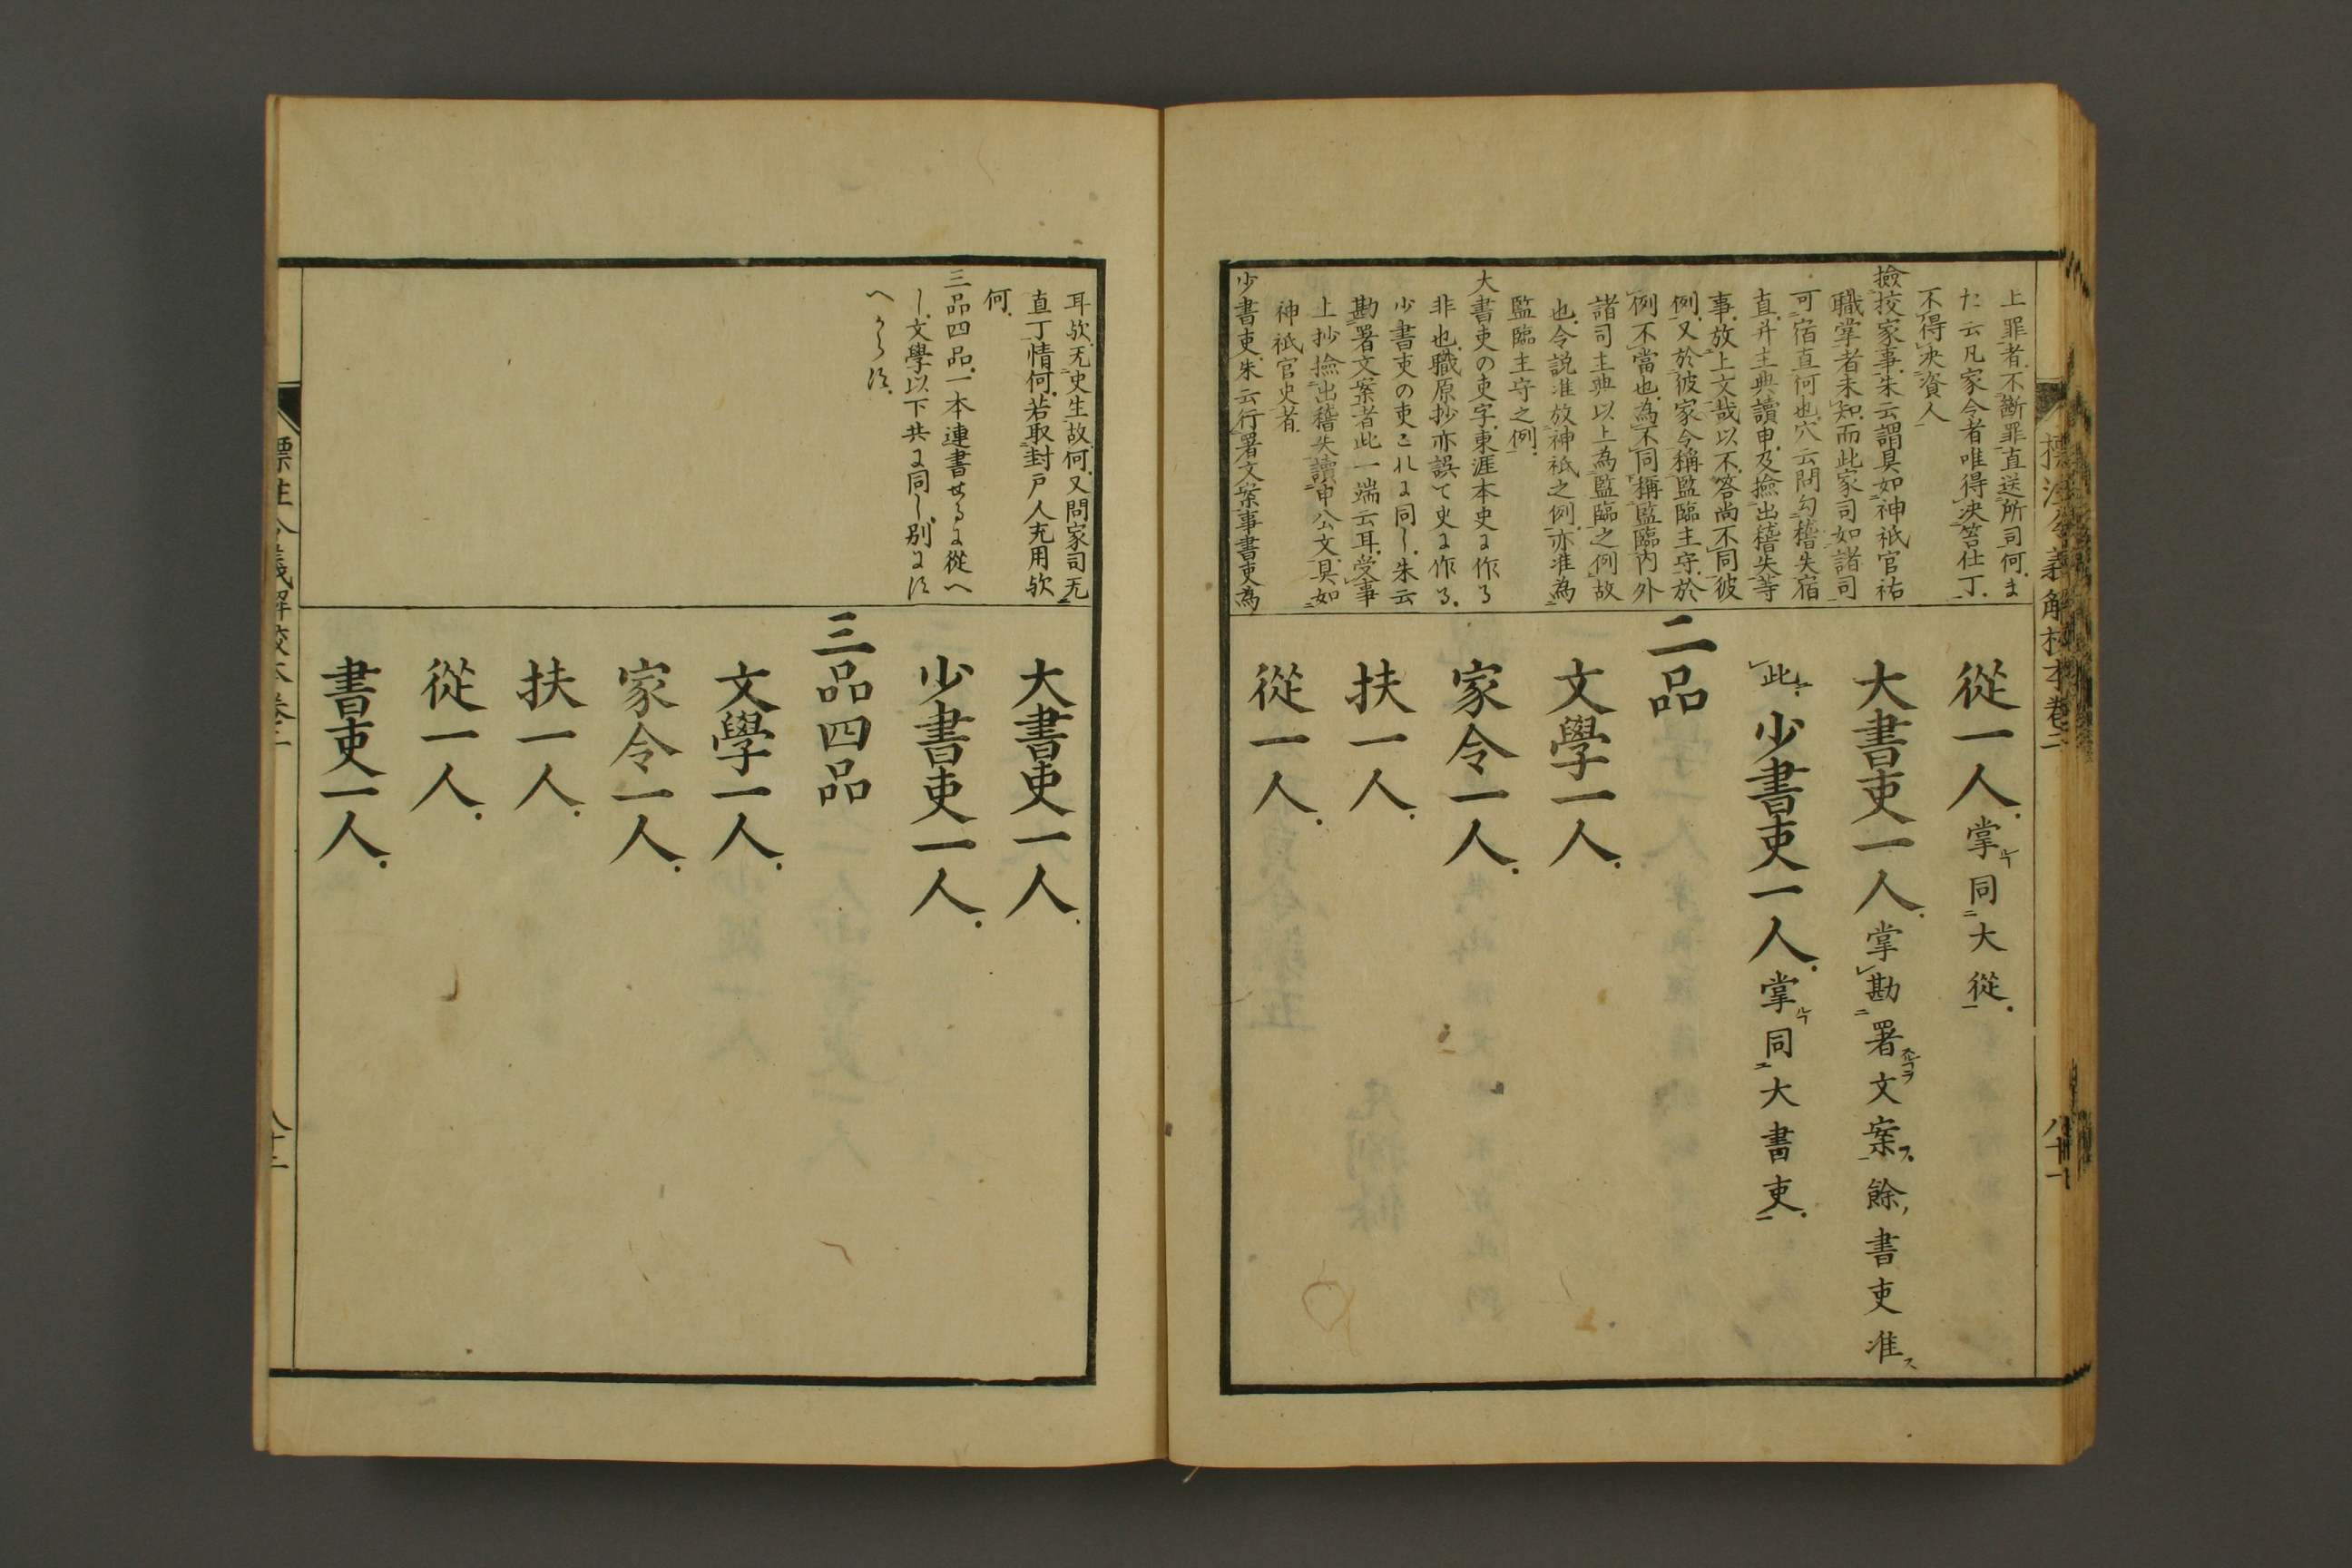 標注令義解校本卷二
八十一
上罪者、不斷罪直送所司何、ま
た云凡家令者唯得决笞仕丁、
不得决資人
撿挍家事、朱云謂具如神祇官祐
職掌者未知、而此家司如諸司
可宿直何也、穴云問勾稽失宿
直、并主典讀申、及撿出稽失等
事、放上文哉以不、答尚不同彼
例、又於彼家令稱監臨主守、於
例不當也、為不同稱監臨内外
諸司主典以上為監臨之例故
也、令説准放神祇之例、亦准為
監臨主守之例、
大書吏の吏字、東涯本史に作る
非也、職原抄亦誤て史に作る、
少書吏の吏これに同し、朱云
勘署文案者此一端云耳、受事
上抄撿出稽失讀申公文、具如
神祇官史者、
少書吏、朱云行署文案事書吏為
從一人、掌同大從、
大書吏一人、掌勘署文案、餘書吏准
此、少書吏一人、掌同大書吏、
二品
文學一人、
家令一人、
扶一人、
從一人、
耳歟、无史生故何、又問家司无
直丁情何、若取封戸人充用歟
何、
三品四品、一本連書せるに從へ
し、文學以下共に同し、別に注
へからす、
大書吏一人、
少書吏一人、
三品四品
文學一人、
家令一人、
扶一人、
從一人、
書吏一人、
標注令義解校本卷二
八十二